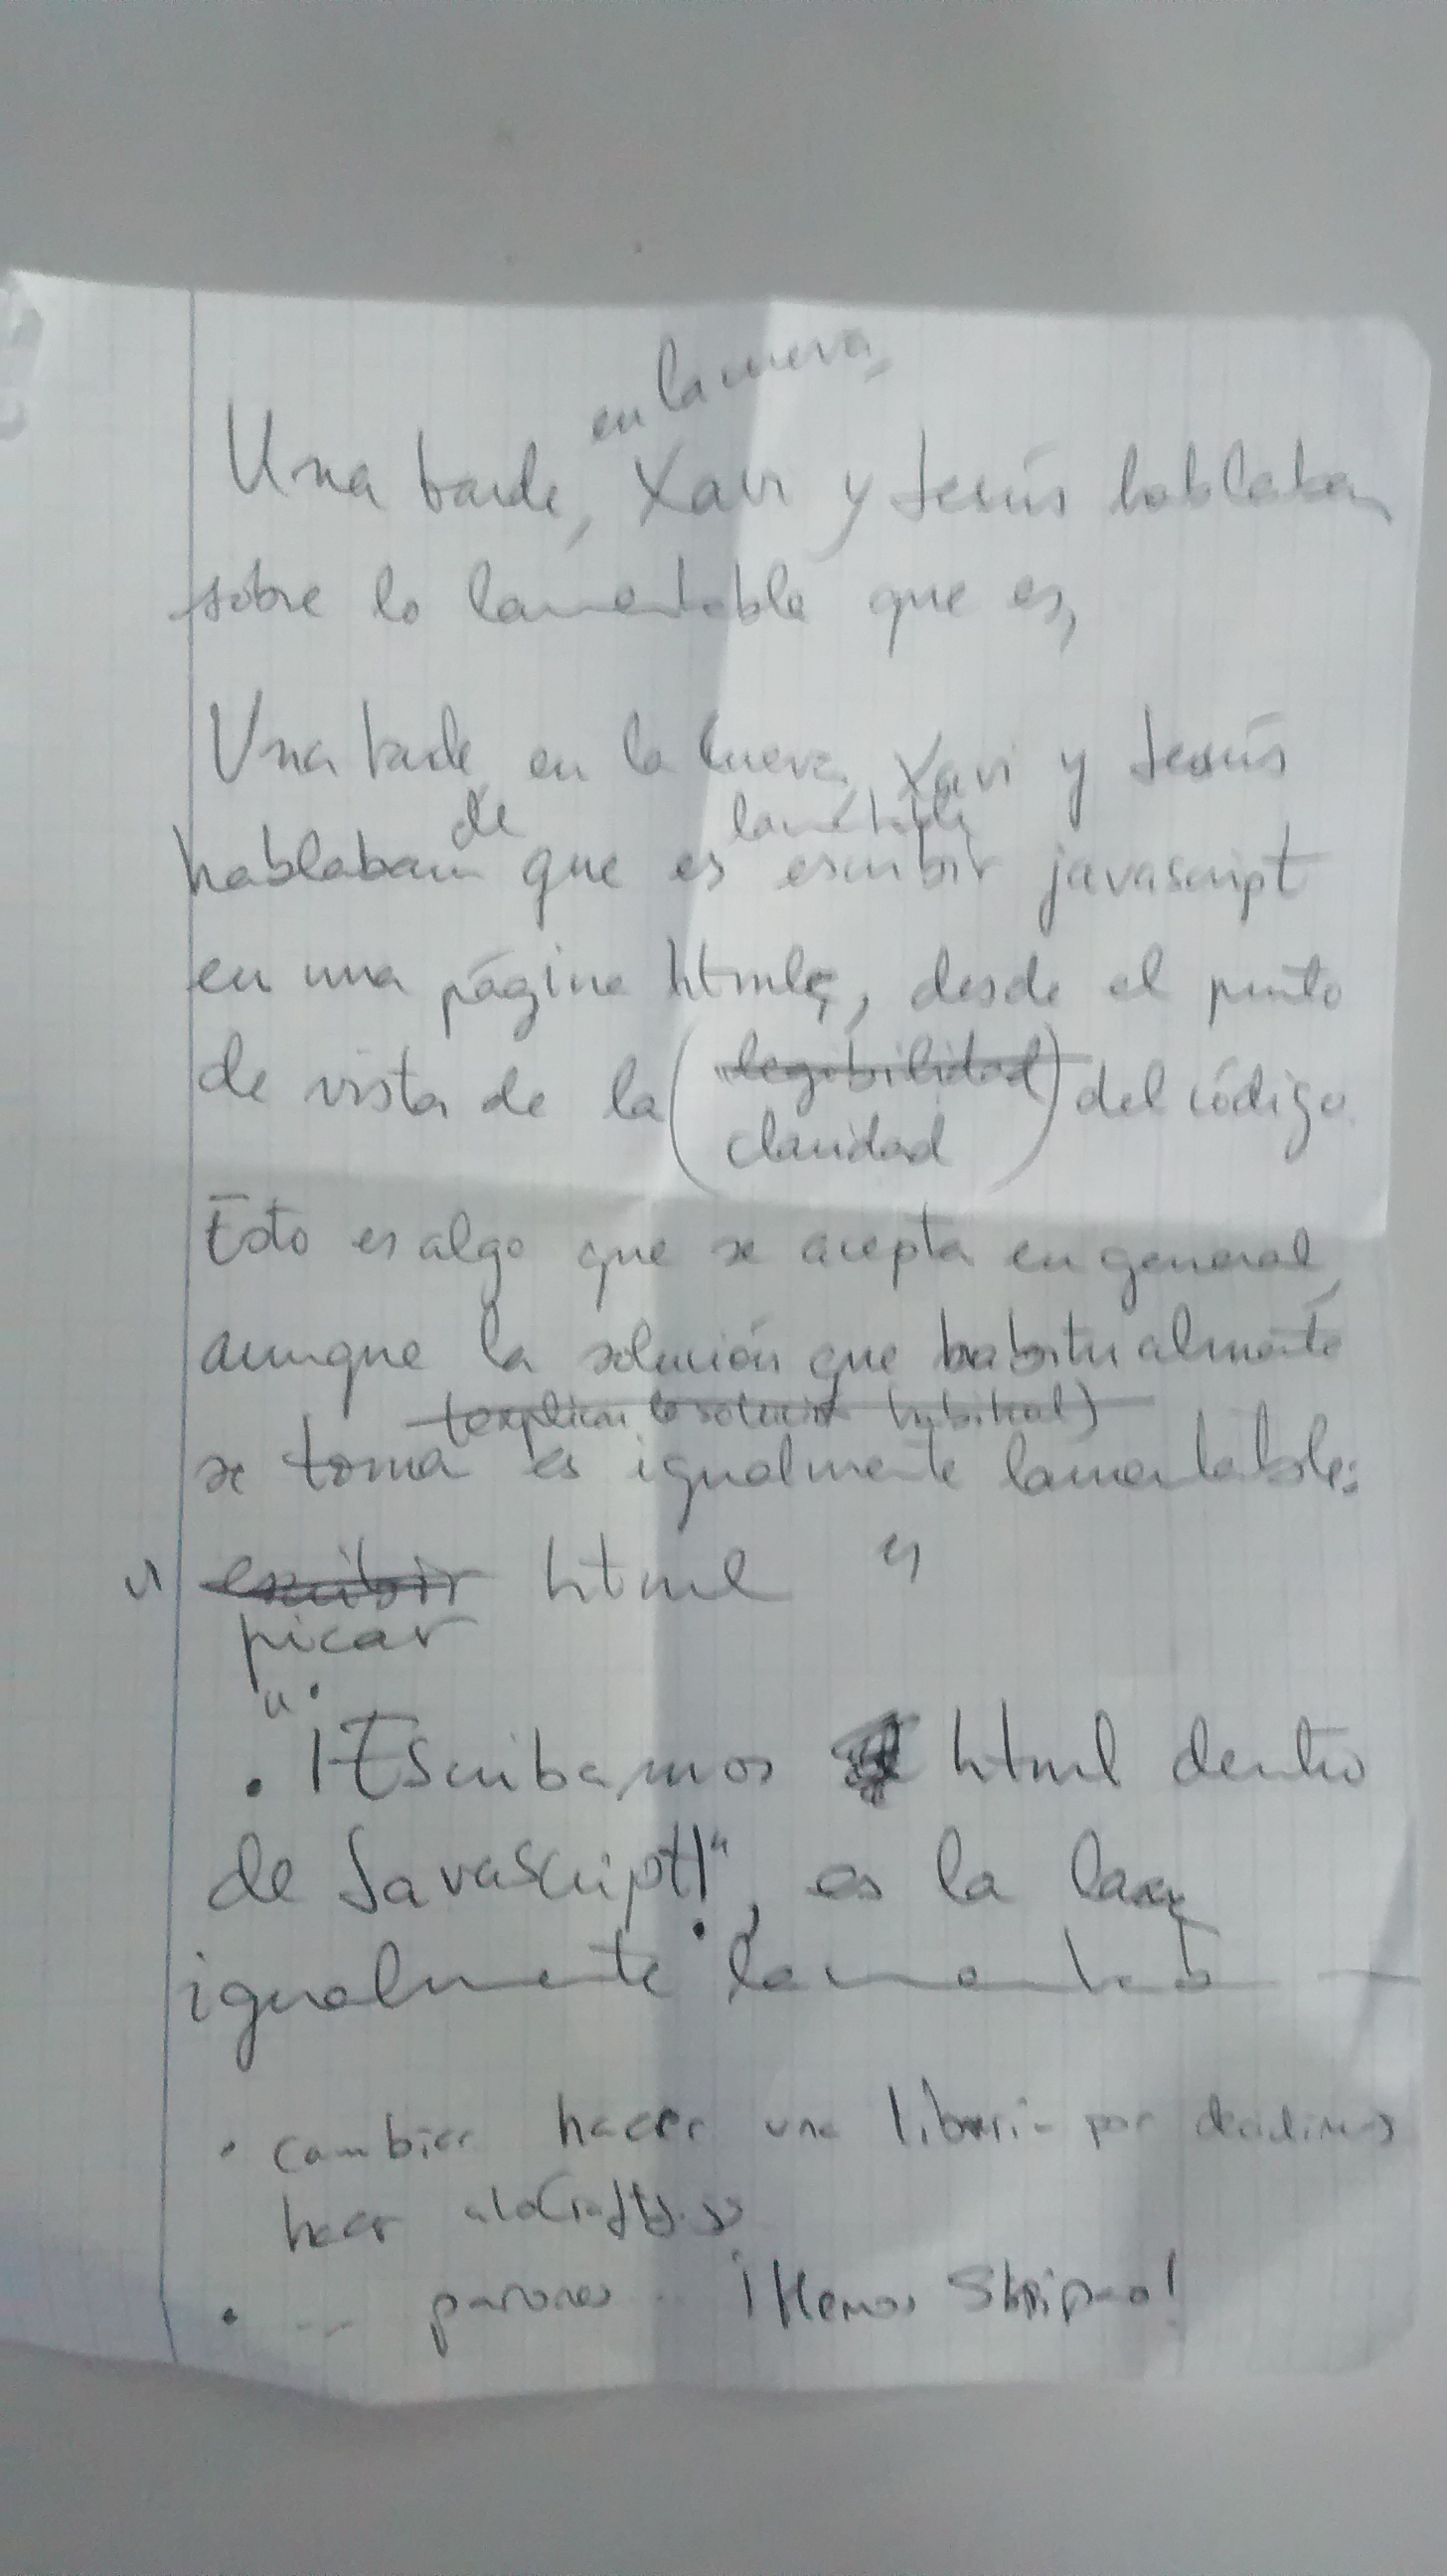 en la cueva,
Una tarde, Xavi y Jesús hablaban
sobre lo lamentable que es,
Una tarde en la cueva, Xavi y Jesús
de lamentable
hablaban que es escribir javascript
en una página html, desde el punto
de vista de la (legibilidad) del código.
claridad
Esto es algo que se acepta en general,
aunque la solución que habitualmente
(explicar la solución habitual)
se toma es igualmente lamentable:
" escribir html "
picar
"
• ¡Escribamos html dentro
de Javascript!", es la
igualmente
• cambiar hacer una librería por decidimos
hacer
• ... ¡Hemos